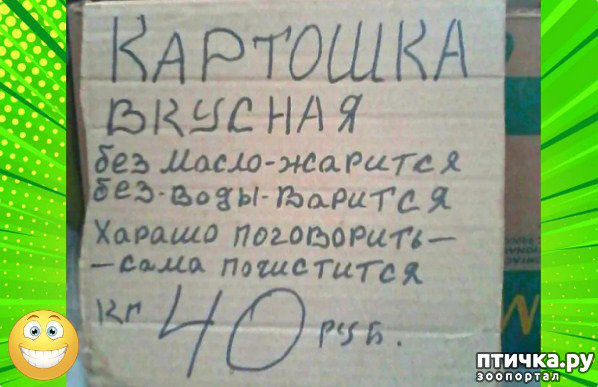 КАРТОШКА
ВКУСНАЯ
без масло-жарится
без-воды-варится
Харашо поговорить-
-сама почистится
кг 40 руб.
птичка.ру
зоопортал